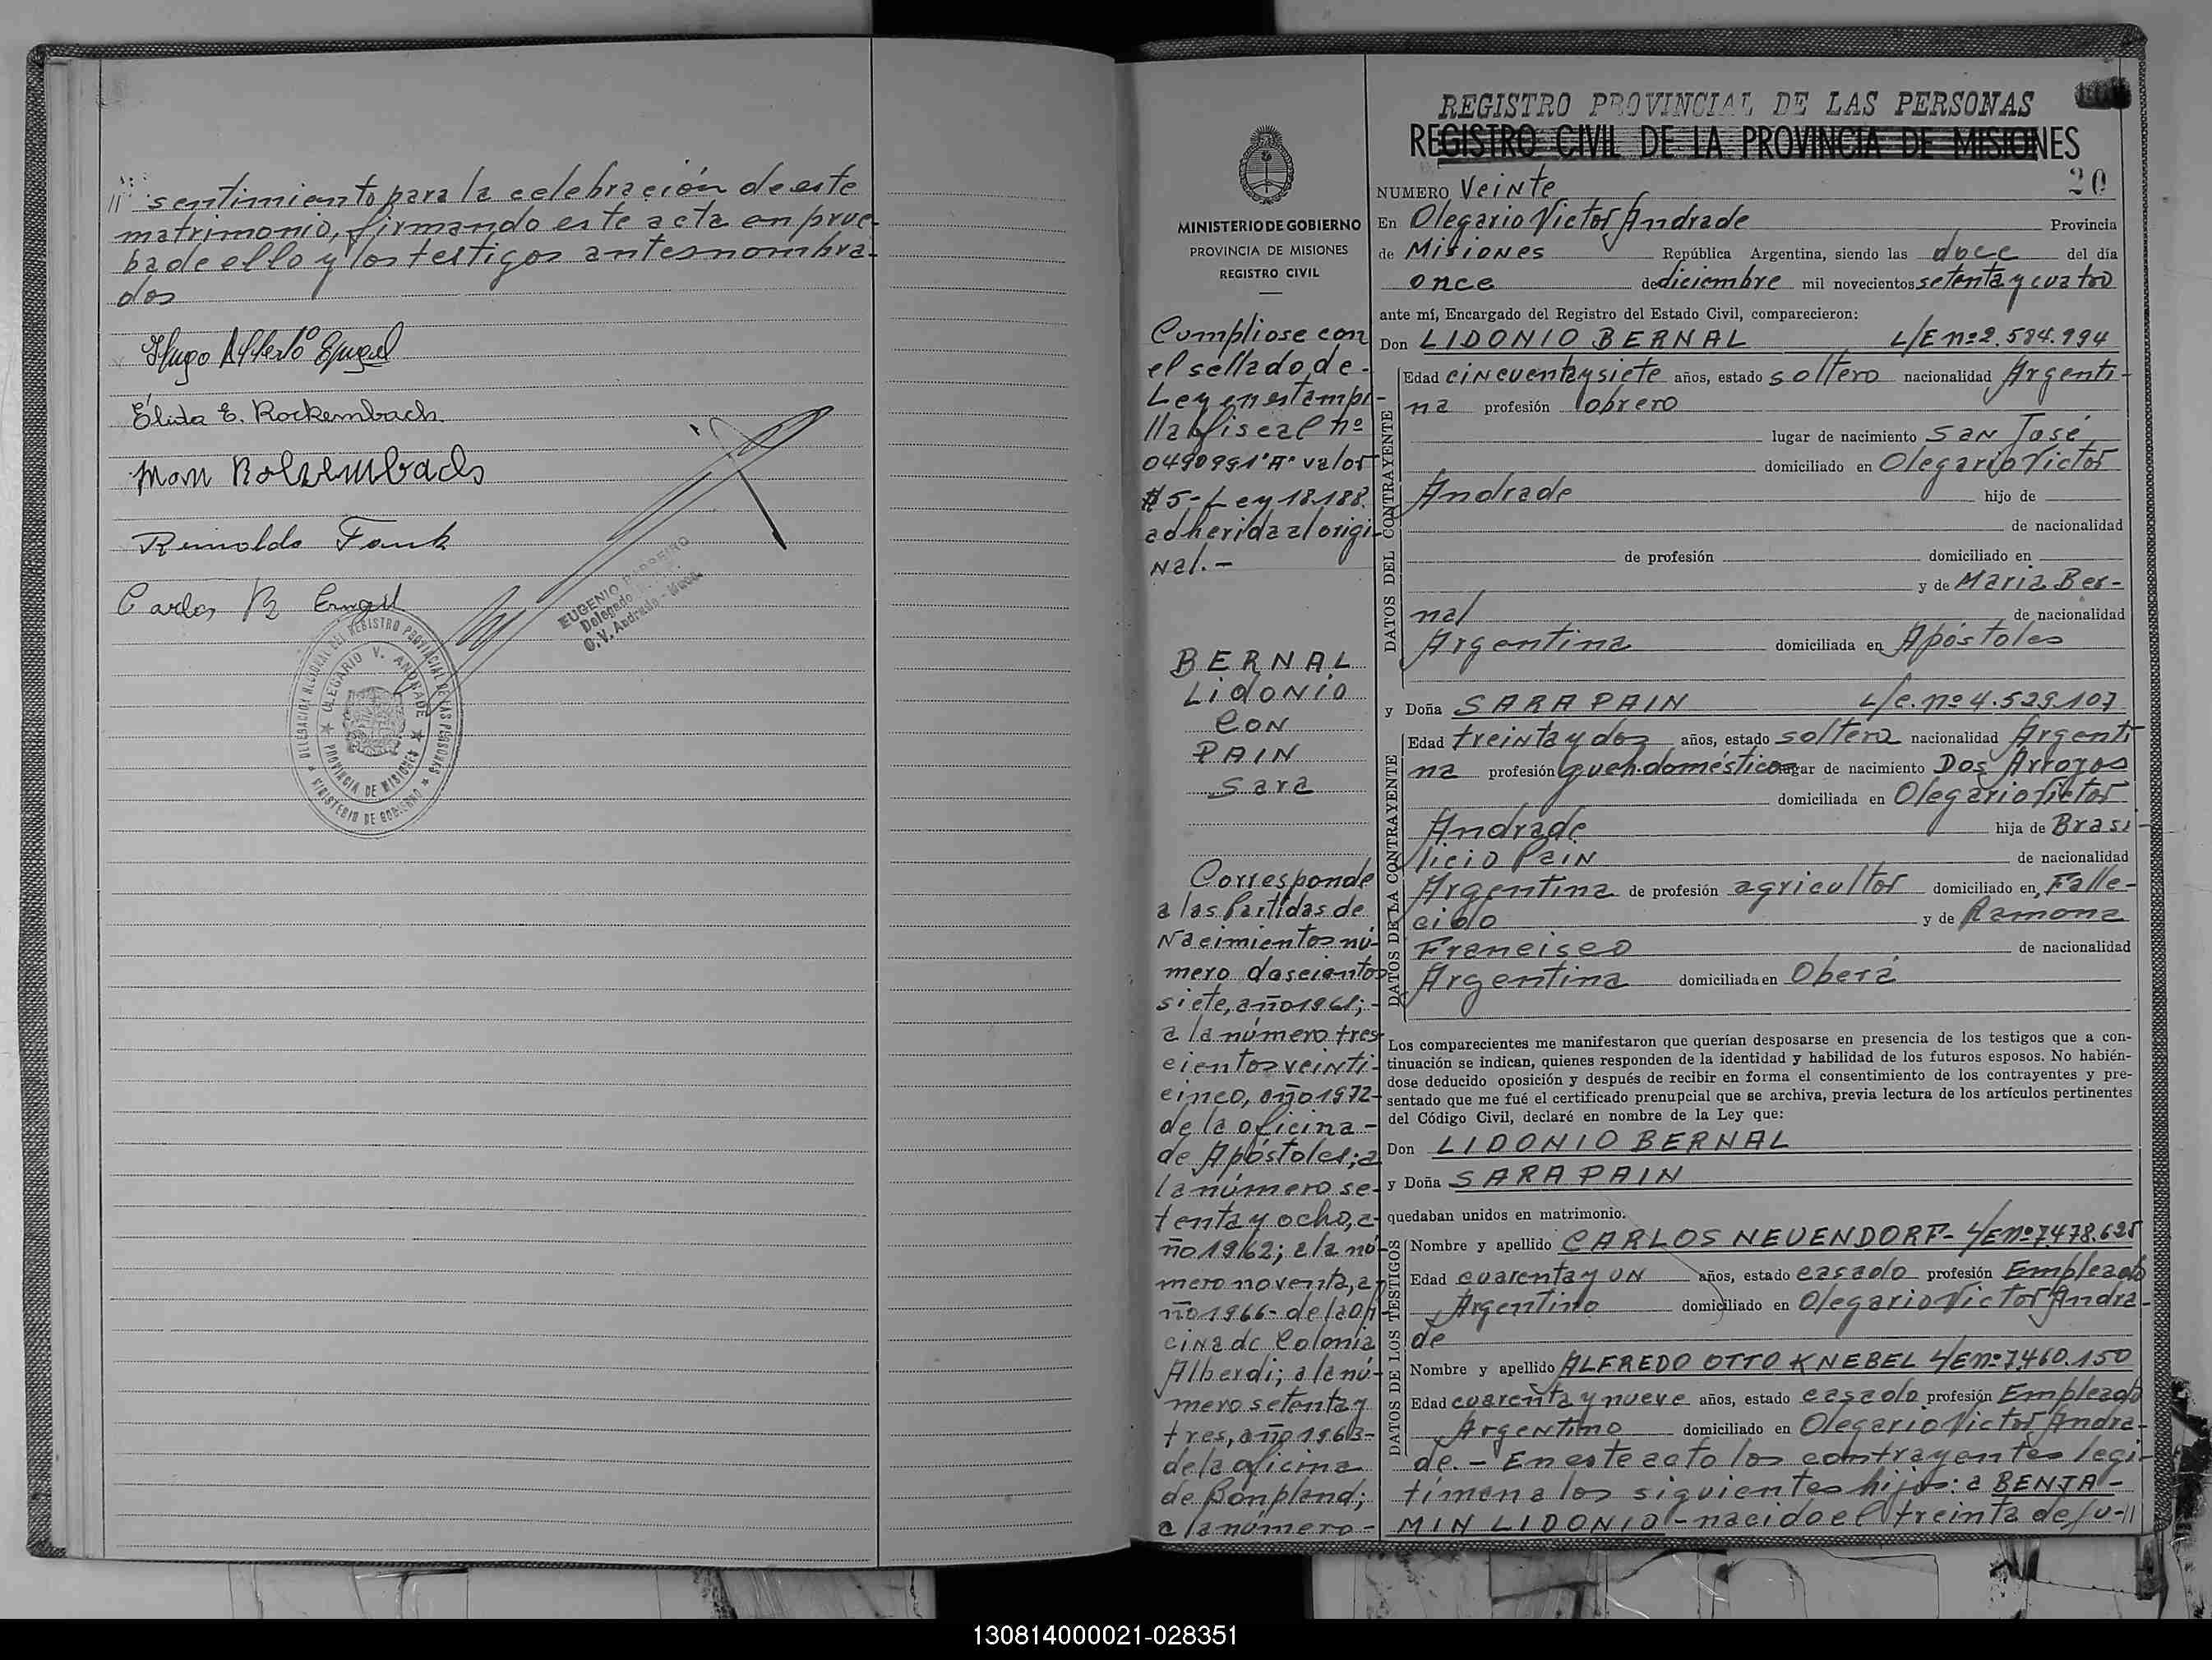 sentimiento para la celebración de este
matrimonio, firmando este acta en prue-
ba de ello y los testigos antes nombra-
dos
Hugo Alberto Engel
Élida E. Rockembach
Rockembach
Reinoldo Fank
Carlos R Engel
EUGENIO BARREIRO
Delegado
O. V. Andrade - Mnes.
DELEGACION REGIONAL DEL REGISTRO PROVINCIAL DE LAS PERSONAS
OLEGARIO V. ANDRADE
PROVINCIA DE MISIONES
MINISTERIO DE GOBIERNO
MINISTERIO DE GOBIERNO
PROVINCIA DE MISIONES
REGISTRO CIVIL
Cumpliose con
el sellado de
Ley en estampi-
lla fiscal nº
0490991"A" valor
$ 5- Ley 18.188.
adherida al origi-
nal.-
BERNAL
LidoNio
CON
PAIN
Sara
Corresponde
a las Partidas de
Nacimientos nú-
mero doscientos
siete, año 1961;-
a la número tres-
cientos veinti-
cinco, año 1972-
de la oficina-
de Apóstoles; a
la número se-
tenta y ocho, a-
ño 1962; a la nú-
mero noventa, a-
ño 1966- de la ofi-
cina de Colonia
Alberdi; a la nú-
mero setenta y
tres, año 1963-
de la oficina
de Bonpland;
a la número-
REGISTRO PROVINCIAL DE LAS PERSONAS
REGISTRO CIVIL DE LA PROVINCIA DE MISIONES
NUMERO Veinte 20
En Olegario Victor Andrade Provincia
de Misiones República Argentina, siendo las doce del día
once de diciembre mil novecientos setenta y cuatro
ante mí, Encargado del Registro del Estado Civil, comparecieron:
Don LIDONIO BERNAL L/E nº 2.584.994
DATOS DEL CONTRAYENTE
Edad cincuenta y siete años, estado soltero nacionalidad Argenti-
na profesión obrero
lugar de nacimiento San José
domiciliado en Olegario Victor
Andrade hijo de
de nacionalidad
de profesión domiciliado en
y de Maria Ber-
nal de nacionalidad
Argentina domiciliada en Apóstoles
y Doña SARA PAIN L/c. nº 4.529.107
DATOS DE LA CONTRAYENTE
Edad treinta y dos años, estado soltera nacionalidad Argenti-
na profesión queh. domésticos lugar de nacimiento Dos Arroyos
domiciliada en Olegario Victor
Andrade hija de Brasi-
licio Pain de nacionalidad
Argentina de profesión agricultor domiciliado en Falle-
cido y de Ramona
Francisco de nacionalidad
Argentina domiciliada en Oberá
Los comparecientes me manifestaron que querían desposarse en presencia de los testigos que a con-
tinuación se indican, quienes responden de la identidad y habilidad de los futuros esposos. No habién-
dose deducido oposición y después de recibir en forma el consentimiento de los contrayentes y pre-
sentado que me fué el certificado prenupcial que se archiva, previa lectura de los artículos pertinentes
del Código Civil, declaré en nombre de la Ley que:
Don LIDONIO BERNAL
y Doña SARA PAIN
quedaban unidos en matrimonio.
DATOS DE LOS TESTIGOS
Nombre y apellido CARLOS NEUENDORF- L/E nº 7.478.625
Edad cuarenta y un años, estado casado profesión Empleado
Argentino domiciliado en Olegario Victor Andra-
de
Nombre y apellido ALFREDO OTTO KNEBEL L/E nº 7.460.150
Edad cuarenta y nueve años, estado casado profesión Empleado
Argentino domiciliado en Olegario Victor Andra-
de.- En este acto los contrayentes legi-
timan a los siguientes hijos: a BENJA-
MIN LIDONIO- nacido el treinta de ju-//
130814000021-028351